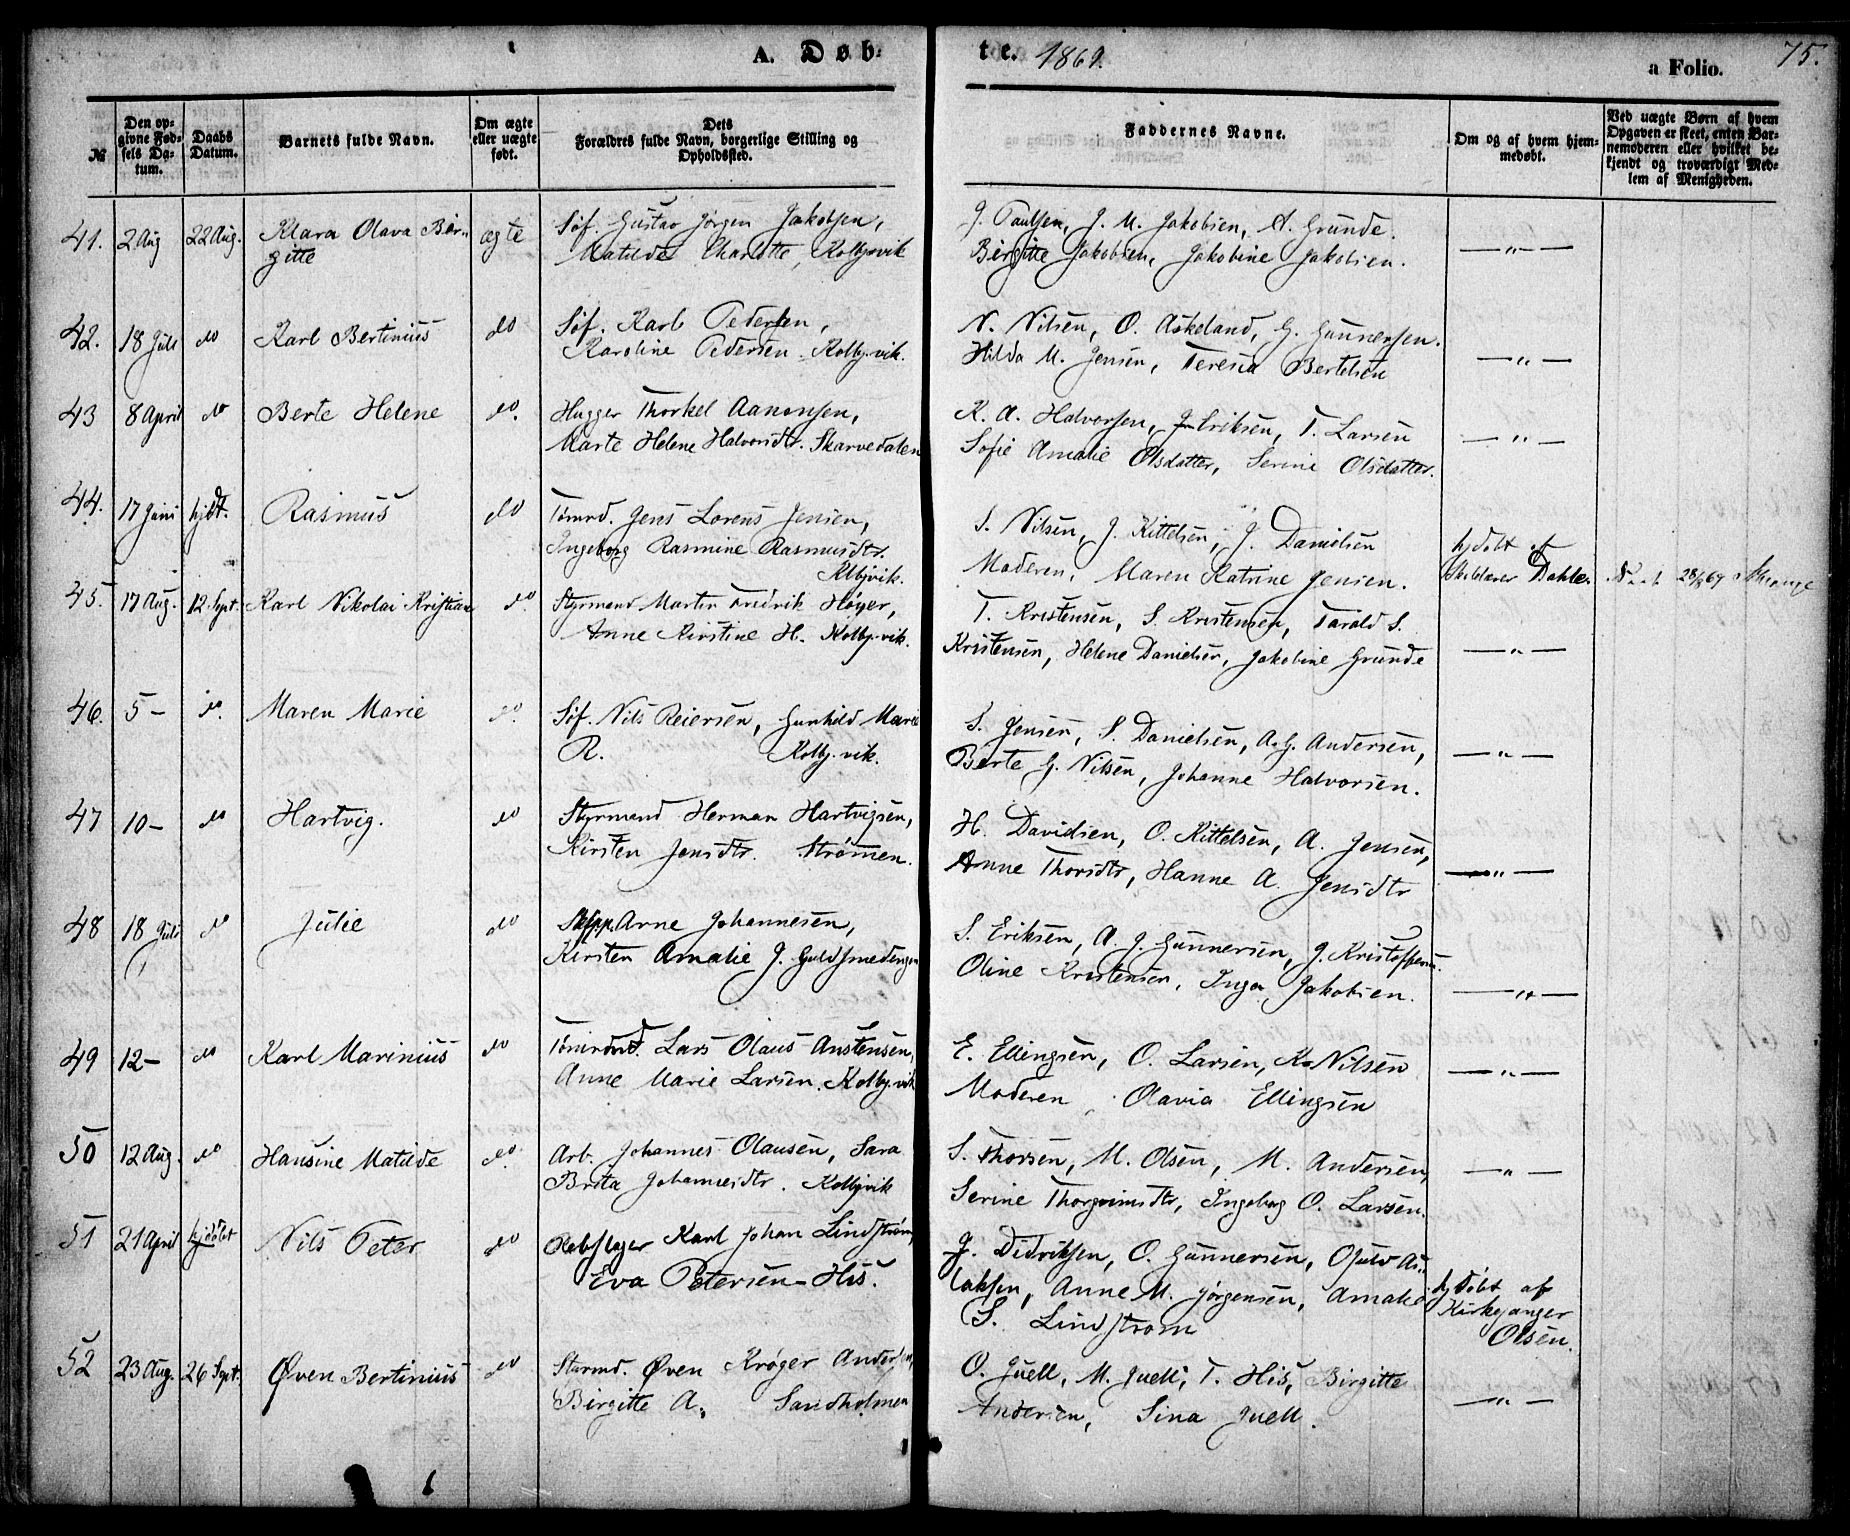 A. Døb-
te. 1869.
a Folio.
75.
№
Den op-
givne Fød-
sels Da-
tum.
Daabs
Datum.
Barnets fulde Navn.
Om ægte
eller uægte
født.
Dets
Forældres fulde Navn, borgerlige Stilling og
Opholdssted.
Faddernes Navne.
Om og af hvem hjem-
medøbt.
Ved uægte Børn af hvem
Opgaven er skeet, enten Bar-
nemoderen eller hvilket be-
kjendt og troværdigt Med-
lem af Menigheden.
41. 2 Aug 22 Aug. Klara Olava Bir-
gitte
ægte
Søf. Gustav Jørgen Jakobsen,
Matilde Charlotte, Kolbjvik
J. Paulsen, J. M. Jakobsen, A. Grunde.
Birgitte Jakobsen, Jakobine Jakobsen.
— " —
42. 18 Juli do Karl Bertinius do
Søf. Karl Pedersen,
Karoline Pedersen. Kolbj.vik.
N. Nilsen, O. Askeland, G. Gunnersen.
Hilda M. Jensen, Teresia Bertelsen
— " —
43 8 April do Berte Helene do.
Hugger Thorkel Aanonsen,
Marte Helene Halvorsdtr. Skarvedalen
K. A. Halvorsen, J. Eriksen, T. Larsen
Sofie Amalie Olsdatter, Serine Olsdatter.
— " —
44. 17 Juni hjdt. Rasmus do
Tømrd. Jens Lorens Jensen,
Ingeborg Rasmine Rasmusdtr.
Klbjvik.
S. Nilsen, J. Kittelsen, J. Danielsen
Moderen, Maren Katrine Jensen.
hjdøbt af
Skolelærer Dahle.
28/6 69
45. 17 Aug. 12 Sept. Karl Nikolai Kristian do
Styrmand Martin Fredrik Høyer,
Anne Kirstine H. Kolbj.vik.
T. Kristensen, S. Kristensen, Tarald S.
Kristensen, Helene Danielsen, Jakobine Grunde
— " —
46. 5 — do. Maren Marie do.
Søf. Nils Reiersen, Gunhild Marie
R. Kolbj.vik.
S. Jensen, S. Danielsen, A. G. Andersen,
Berte G. Nilsen, Johanne Halvorsen.
— " —
47 10 — do Hartvig. do
Styrmand Herman Hartvigsen,
Kirsten Jensdtr. Strømen.
H. Davidsen, O. Kittelsen, A. Jensen,
Anne Thorsdtr, Hanne A. Jensdtr
— " —
48 18 Juli do Julie do
Skipp. Arne Johannesen,
Kirsten Amalie J. Guldsmedengen
S. Eriksen, A. J. Gunnersen, J. Kristoffersen.
Oline Kristensen, Inga Jakobsen.
— " —
49 12 — do Karl Marinius do
Tømrmd. Lars Olaus Anstensen,
Anne Marie Larsen. Kolbj.vik
E. Ellingsen, O. Larsen, K. Nilsen
Moderen, Olavia Ellingsen
— " —
50 12 Aug. do Hansine Matilde do.
Arb. Johannes Olausen, Sara
Brita Johannesdtr. Kolbjvik
S. Thorsen, M. Olsen, M. Andersen,
Serine Thorgrimsdtr, Ingeborg O. Larsen.
— " —
51 21 April hjdøbt Nils Peter do
Rebslager Karl Johan Lindstrøm,
Eva Petersen — His.
J. Didriksen, O. Gunnersen, Ojulv As-
laksen, Anne M. Jørgensen, Amalie
S. Lindstrøm
hjdøbt af
Kirkesanger
Olsen.
52 23 Aug. 26 Sept. Øven Bertinius do
Styrmd. Øven Krøger Andersen,
Birgitte A., Sandholmen
O. Juell, M. Juell, T. His, Birgitte
Andersen, Sina Juell.
— " —